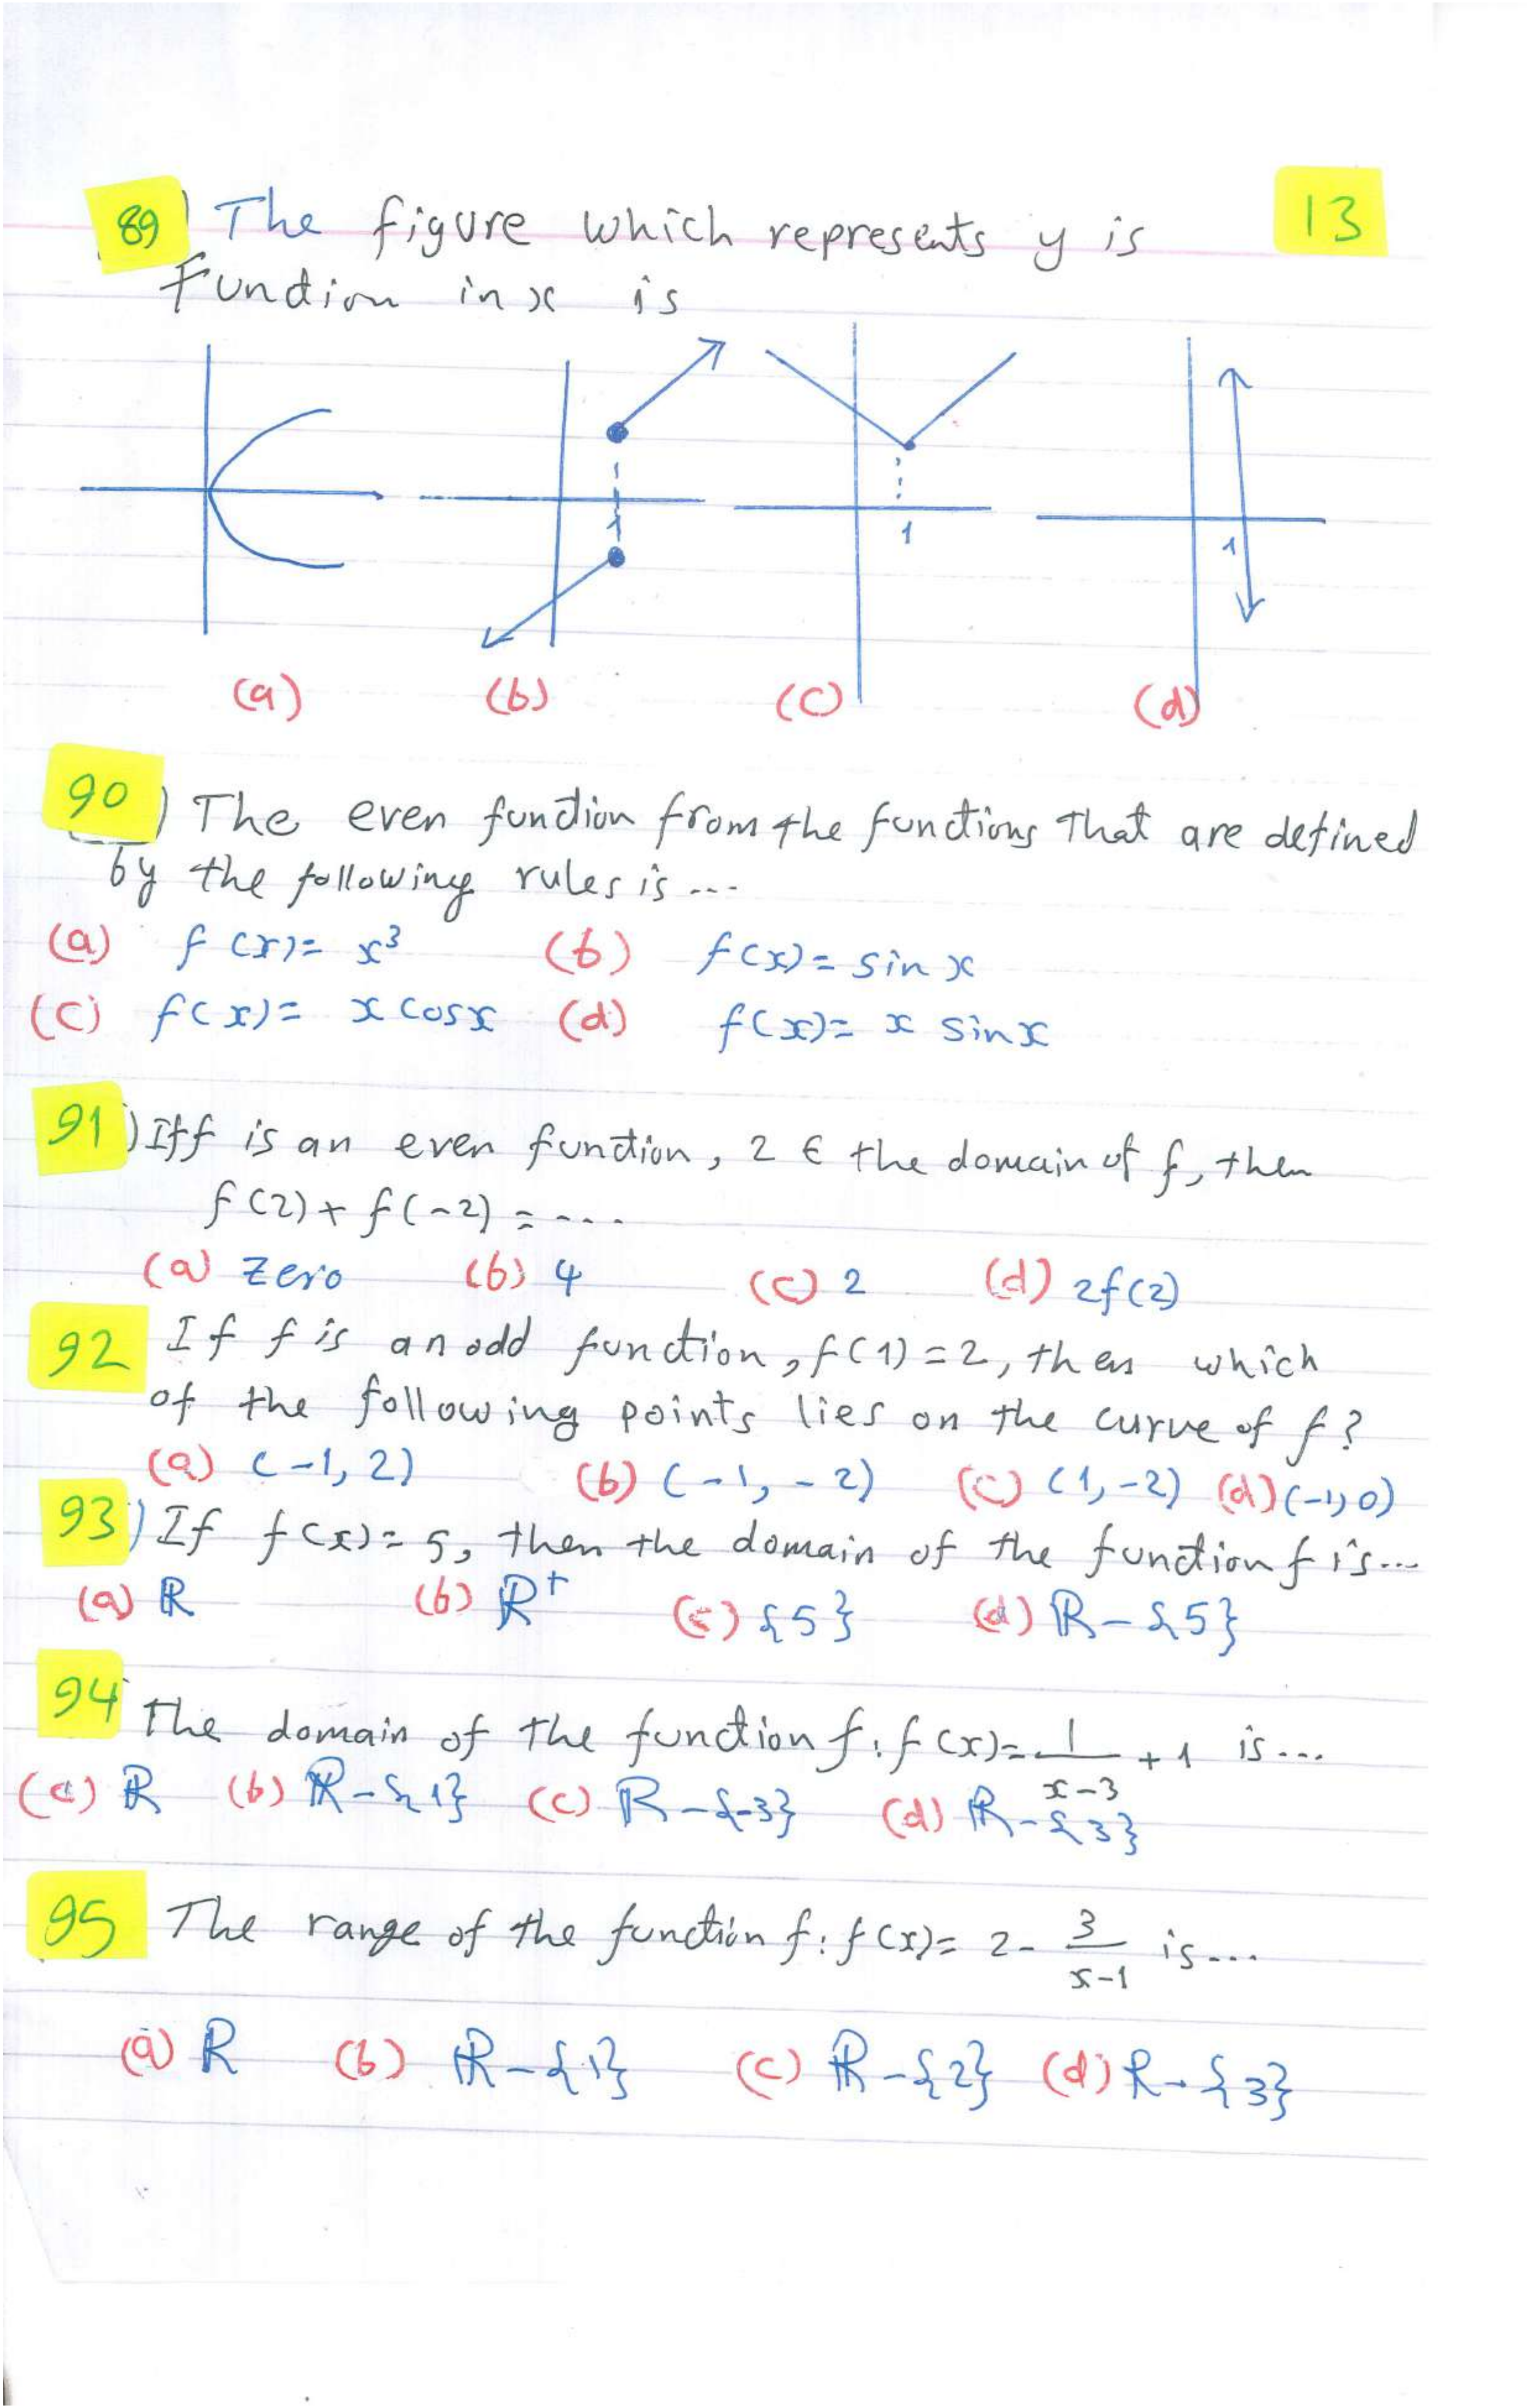 89) The figure which represents y is
13
Function in x is
1
1
1
(a) (b) (c) (d)
90) The even function from the functions that are defined
by the following rules is ...
(a) f(x)= x³ (b) f(x)= sin x
(c) f(x)= x cosx (d) f(x)= x sinx
91) If f is an even function, 2 ∈ the domain of f, then
f(2)+ f(-2) = ....
(a) zero (b) 4 (c) 2 (d) 2f(2)
92 If f is an odd function, f(1)=2, then which
of the following points lies on the curve of f?
(a) (-1, 2) (b) (-1, -2) (c) (1, -2) (d) (-1, 0)
93) If f(x)= 5, then the domain of the function f is...
(a) ℝ (b) ℝ⁺ (c) {5} (d) ℝ-{5}
94 The domain of the function f: f(x)= 1/(x-3) + 1 is...
(a) ℝ (b) ℝ-{1} (c) ℝ-{-3} (d) ℝ-{3}
95 The range of the function f: f(x)= 2- 3/(x-1) is....
(a) ℝ (b) ℝ-{1} (c) ℝ-{2} (d) ℝ-{3}